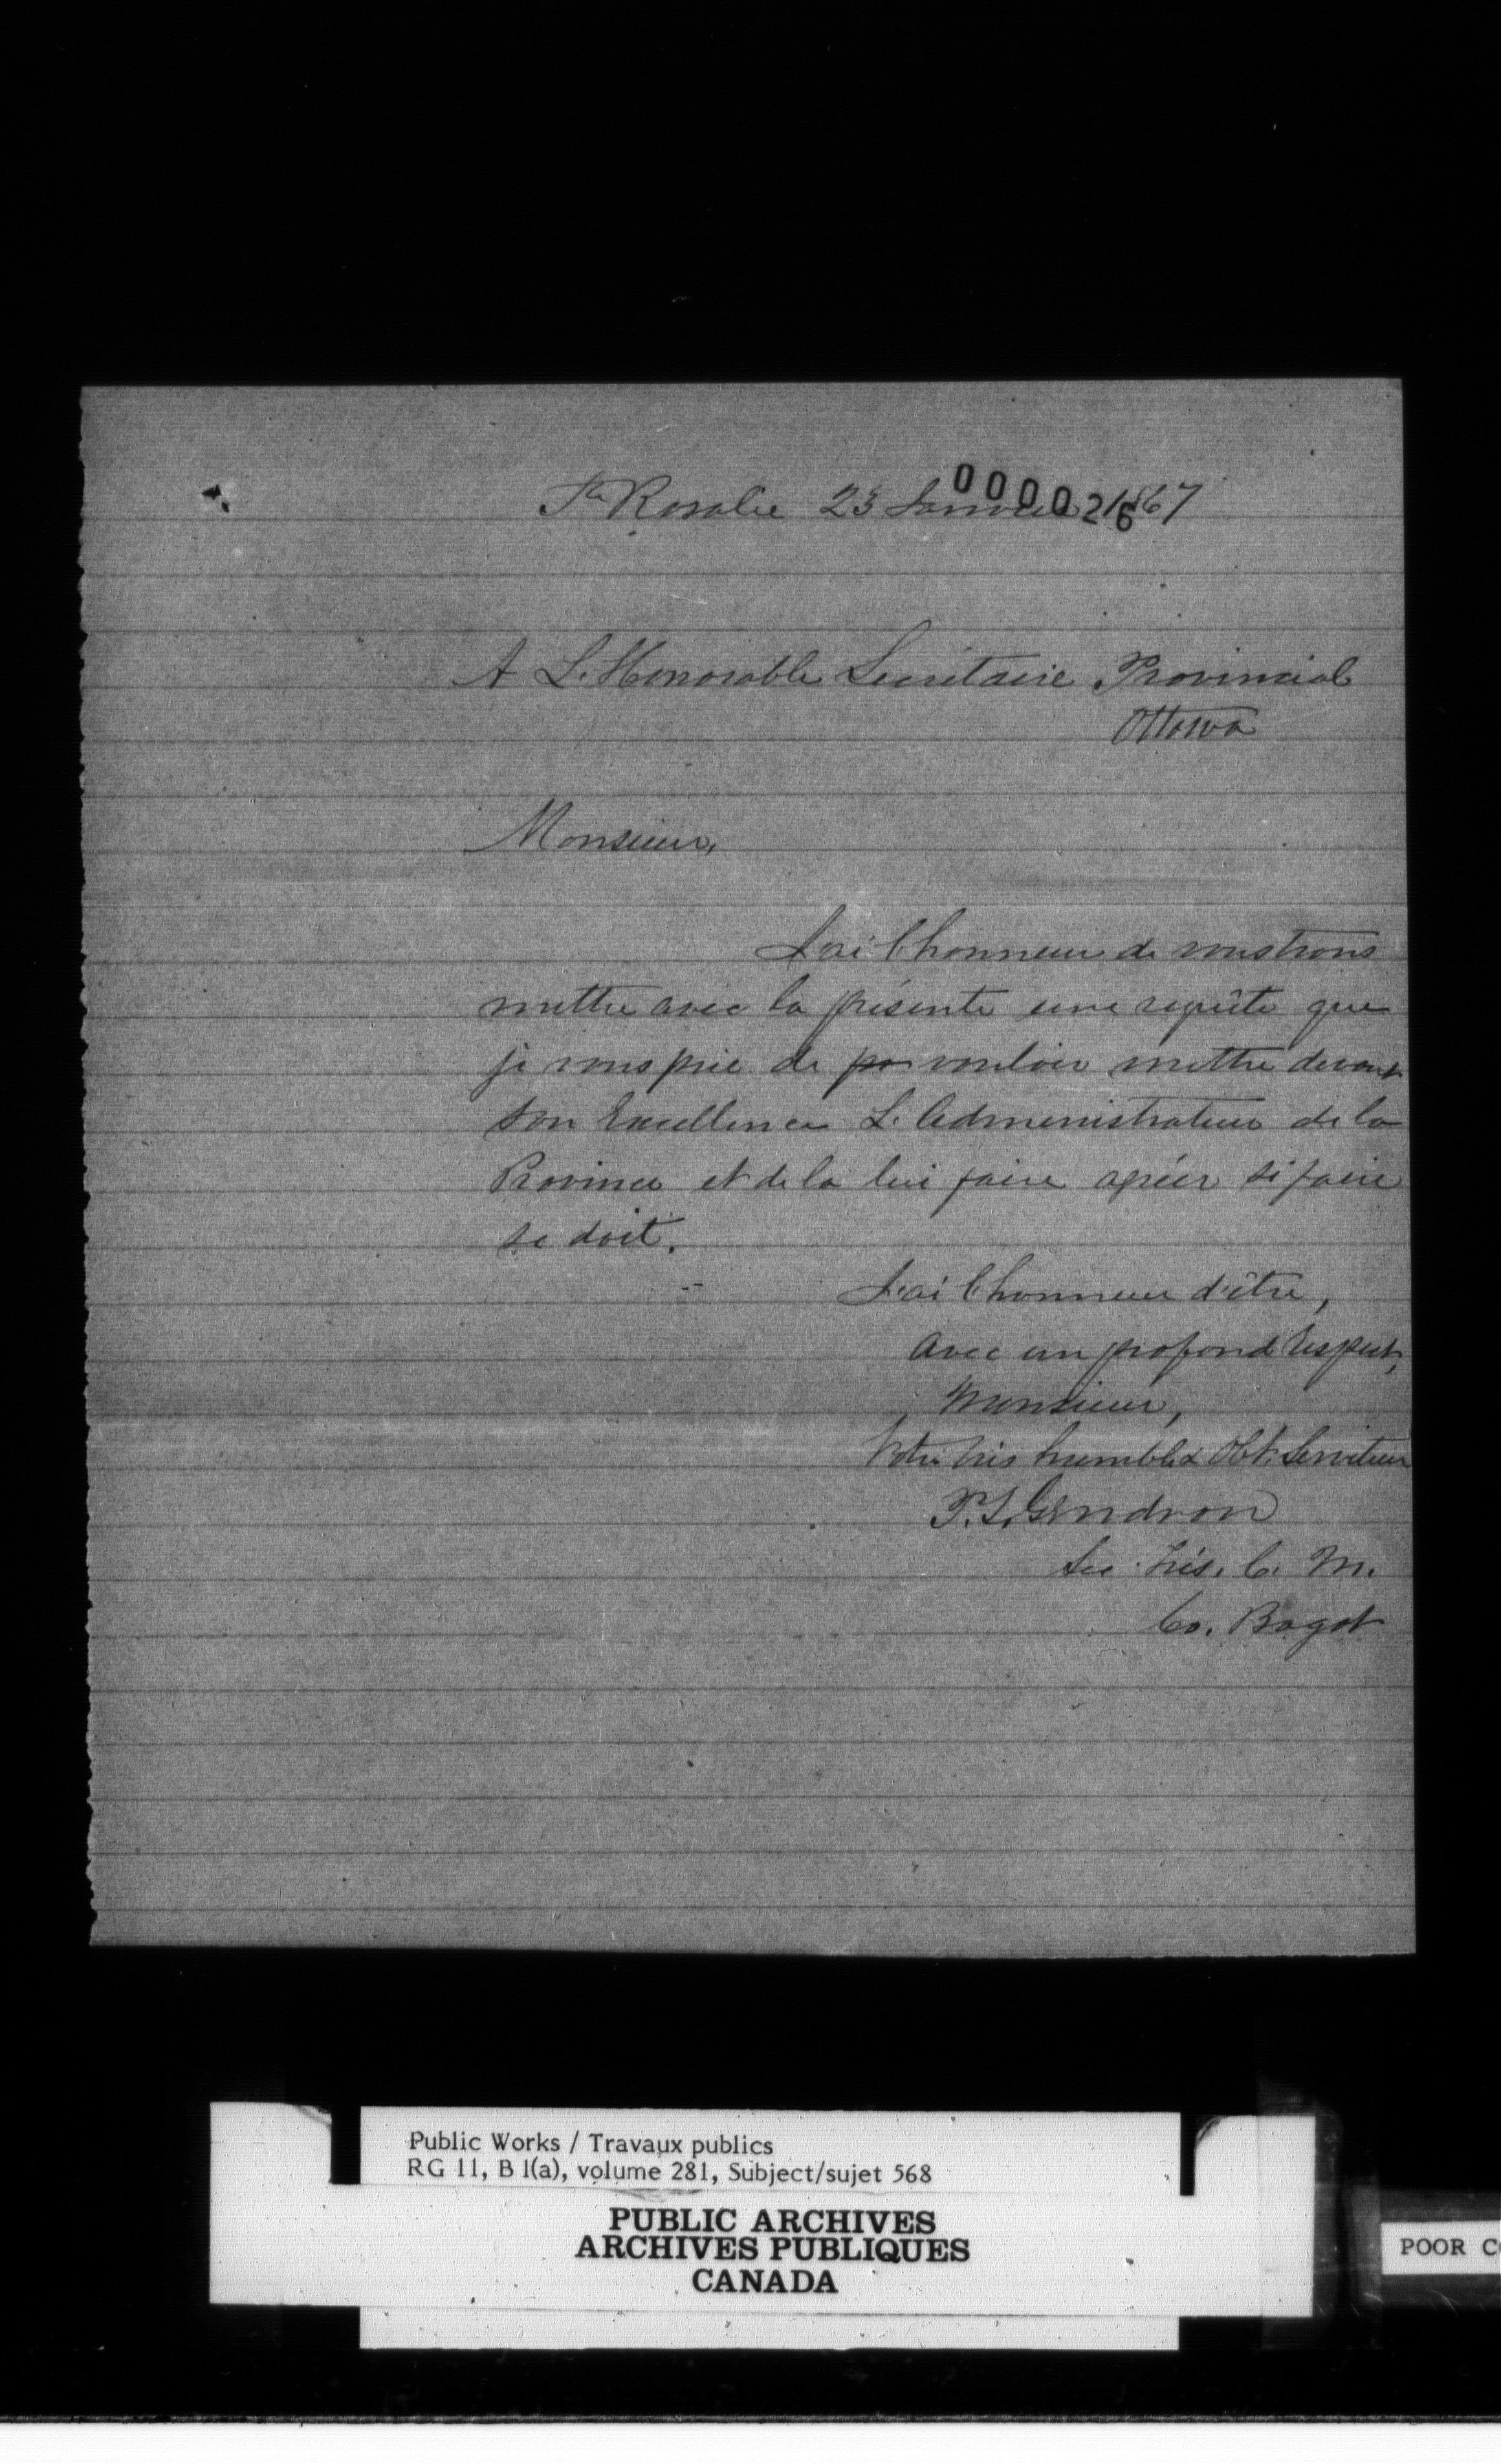 Ste Rosalie 23 Janvier 1867
000026
A L'Honorable Secrétaire Provincial
Ottawa
Monsieur,
J'ai l'honneur de vous trans
mettre avec la présente une requête que
je vous prie de po vouloir mettre devant
Son Excellence L'Administrateur de la
Province et de la lui faire agréer si faire
se doit.
J'ai l'honneur d'être,
Avec un profond Respect,
Monsieur,
Votre très humble & Obt. Serviteur
P. S. Gendron
Sec. Trés. C. M.
Co. Bagot
Public Works / Travaux publics
RG 11, B 1(a), volume 281, Subject/sujet 568
PUBLIC ARCHIVES
ARCHIVES PUBLIQUES
CANADA
POOR C